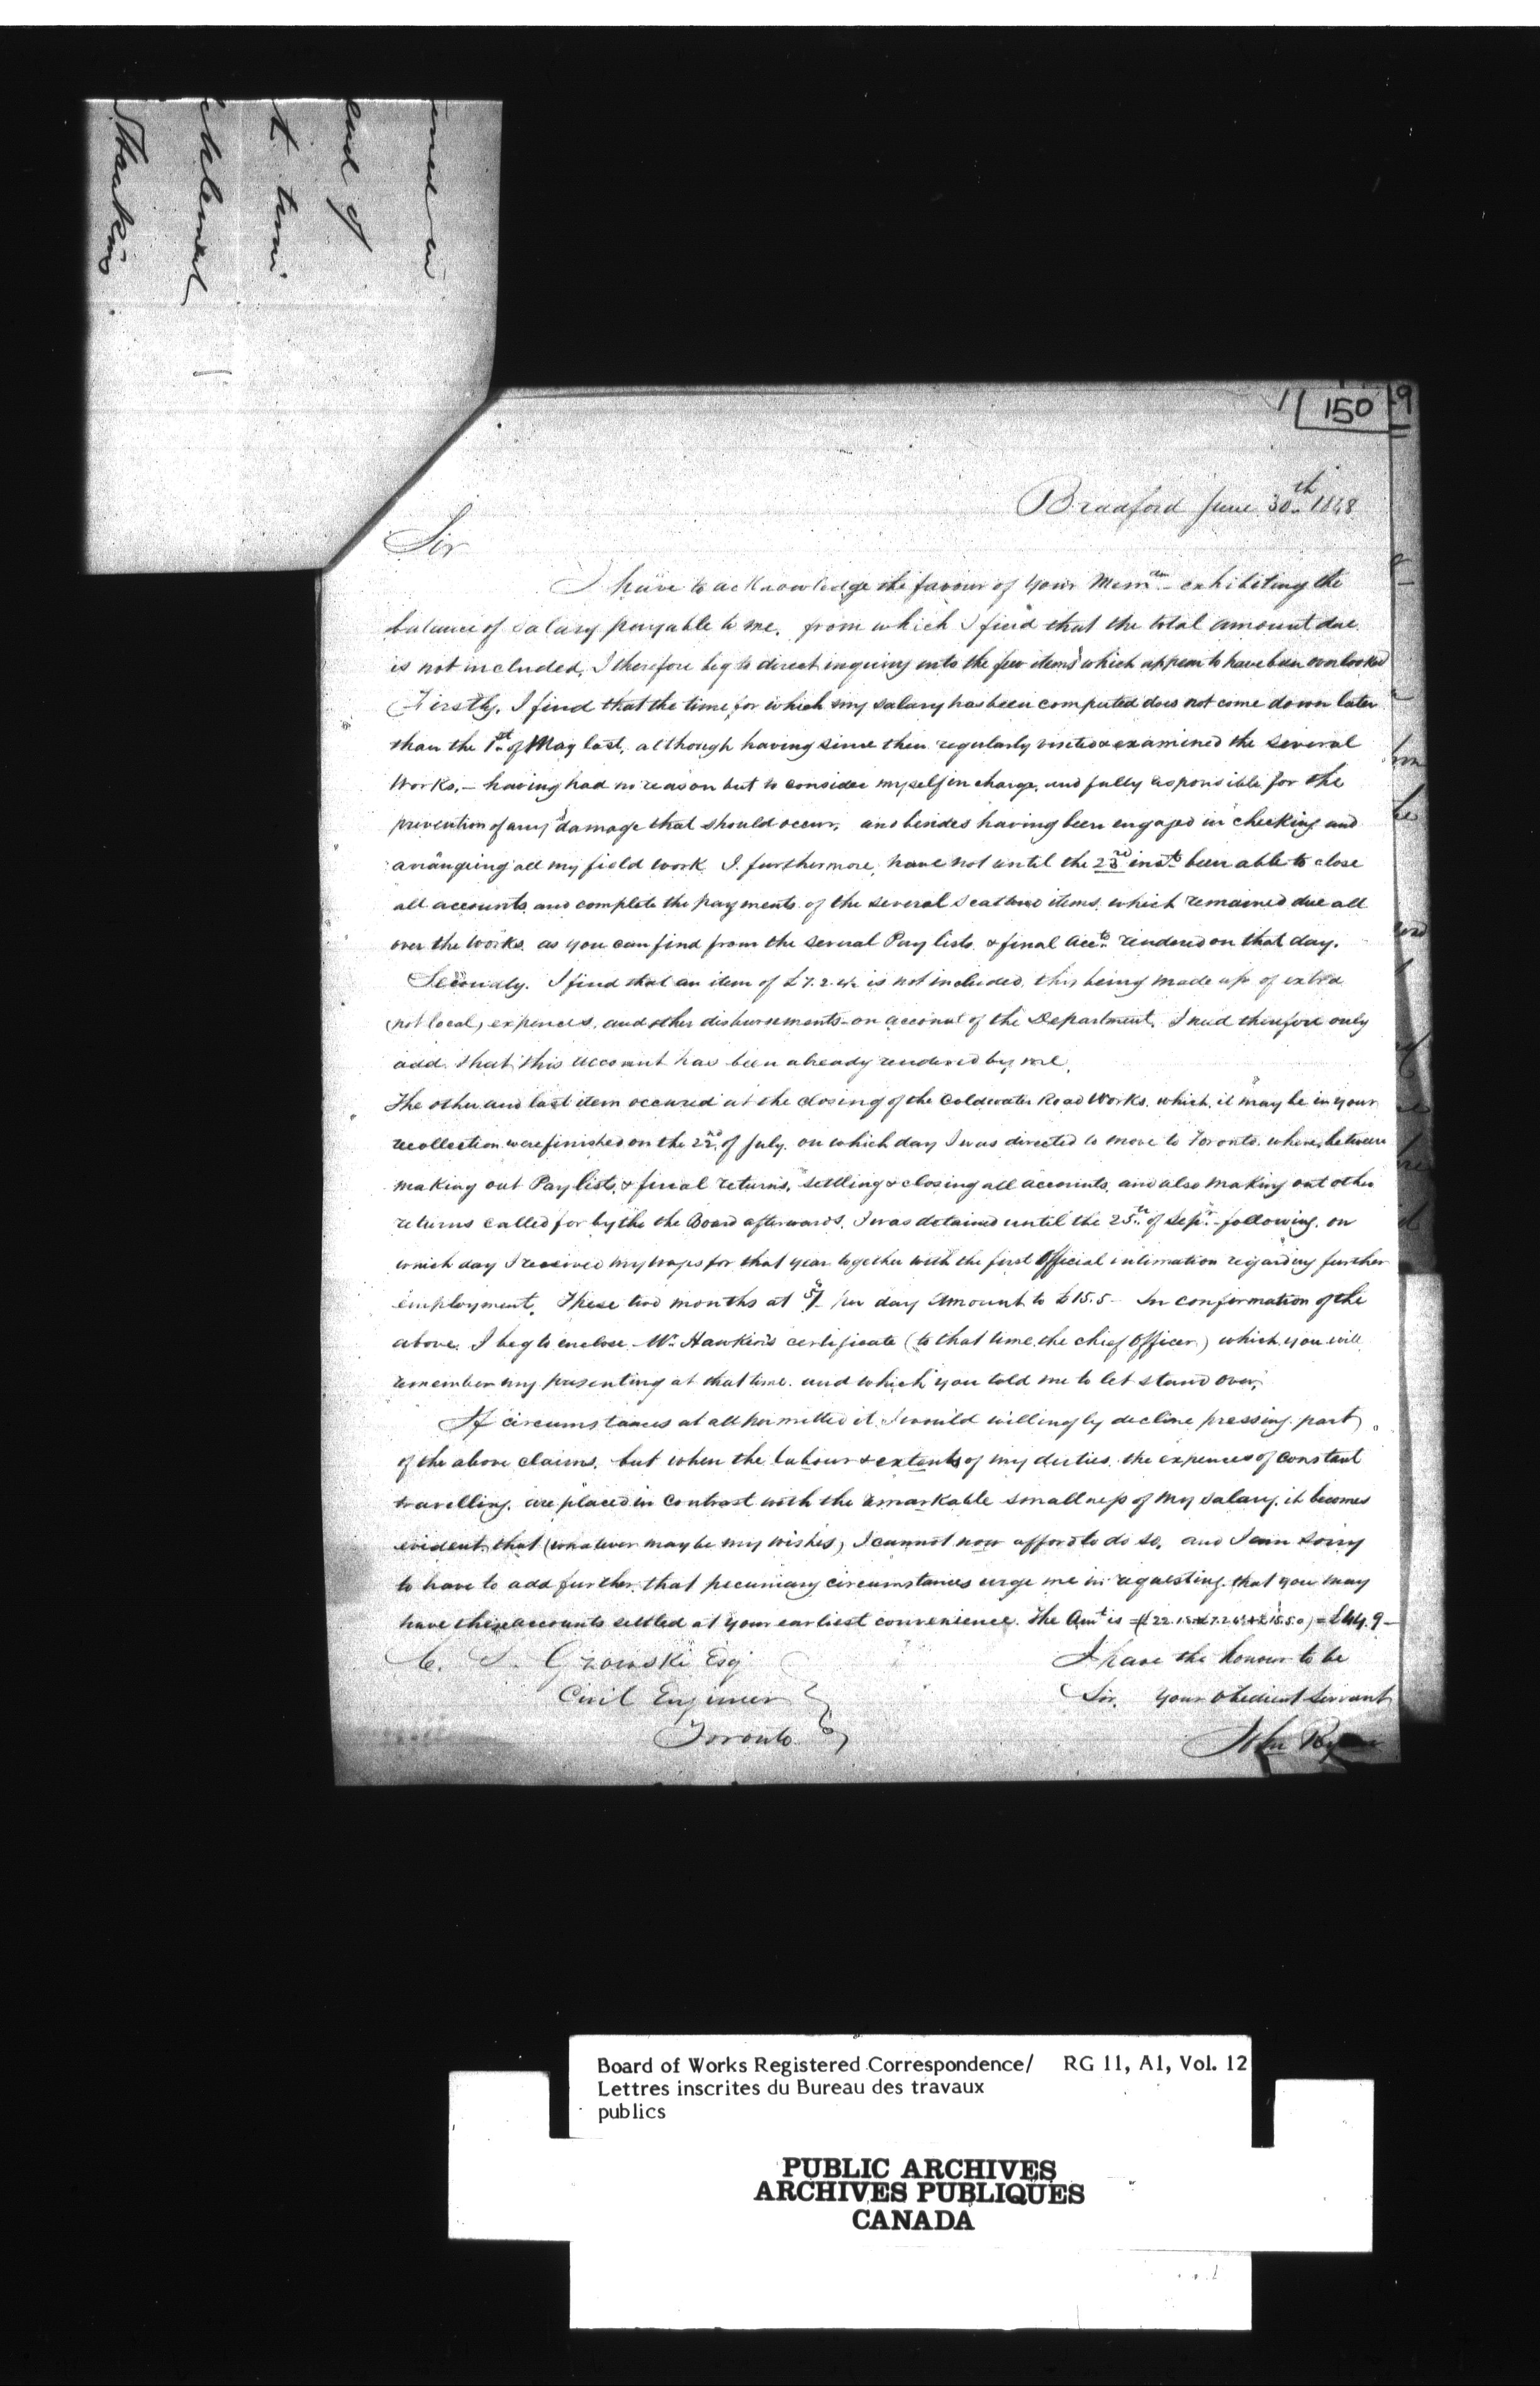 150
9
Bradford June 30th 1848
Sir
I have to acknowledge the favour of your Mem.m exhibiting the
balance of Salary payable to me, from which I find that the total amount due
is not included, I therefore beg to direct inquiry into the few items which appear to have been overlooked
Firstly. I find that the time for which my salary has been computed does not come down later
than the 1st of May last, although having since then regularly visited & examined the several
Works, – having had no reason but to consider myself in charge, and fully responsible for the
prevention of any damage that should occur, and besides having been engaged in checking and
arranging all my field work. I furthermore, have not until the 23rd inst. been able to close
all accounts and complete the payments of the several scattered items, which remained due all
over the works as you can find from the several Pay lists & final Accts. rendered on that day.
Secondly. I find that an item of £7.2.4½ is not included, this being made up of extra
(not local) expences, and other disbursements on account of the Department. I need therefore only
add, that this account has been already rendered by me.
The other and last item occured at the closing of the Coldwater Road Works, which, it may be in your
recollection were finished on the 22nd of July, on which day I was directed to move to Toronto, where, between
making out Pay lists, & final returns, settling & closing all accounts, and also making out other
returns called for by the the Board afterwards, I was detained until the 25th of Sepr. following, on
which day I received my wages for that year together with the first Official intimation regarding further
employment. These two months at 5/ per day amount to £15.5 – In confirmation of the
above, I beg to enclose Mr. Hawkins certificate (to that time, the chief Officer) which you will
remember my presenting at that time, and which you told me to let stand over,
If circumstances at all permitted it I would willingly decline pressing part
of the above claims, but when the labour & extent of my duties, the expences of constant
travelling, are placed in contrast with the remarkable smallness of my salary, it becomes
evident, that (whatever may be my wishes) I cannot now afford to do so, and I am sorry
to have to add further, that pecuniary circumstances urge me in requesting, that you may
have these accounts settled at your earliest convenience. The Amt. is = £44.9 –
C. S. Gzowski Esqr
Civil Engineer
Toronto
I have the honour to be
Sir, your obedient servant
John
Board of Works Registered Correspondence/ RG 11, A1, Vol. 12
Lettres inscrites du Bureau des travaux
publics
PUBLIC ARCHIVES
ARCHIVES PUBLIQUES
CANADA